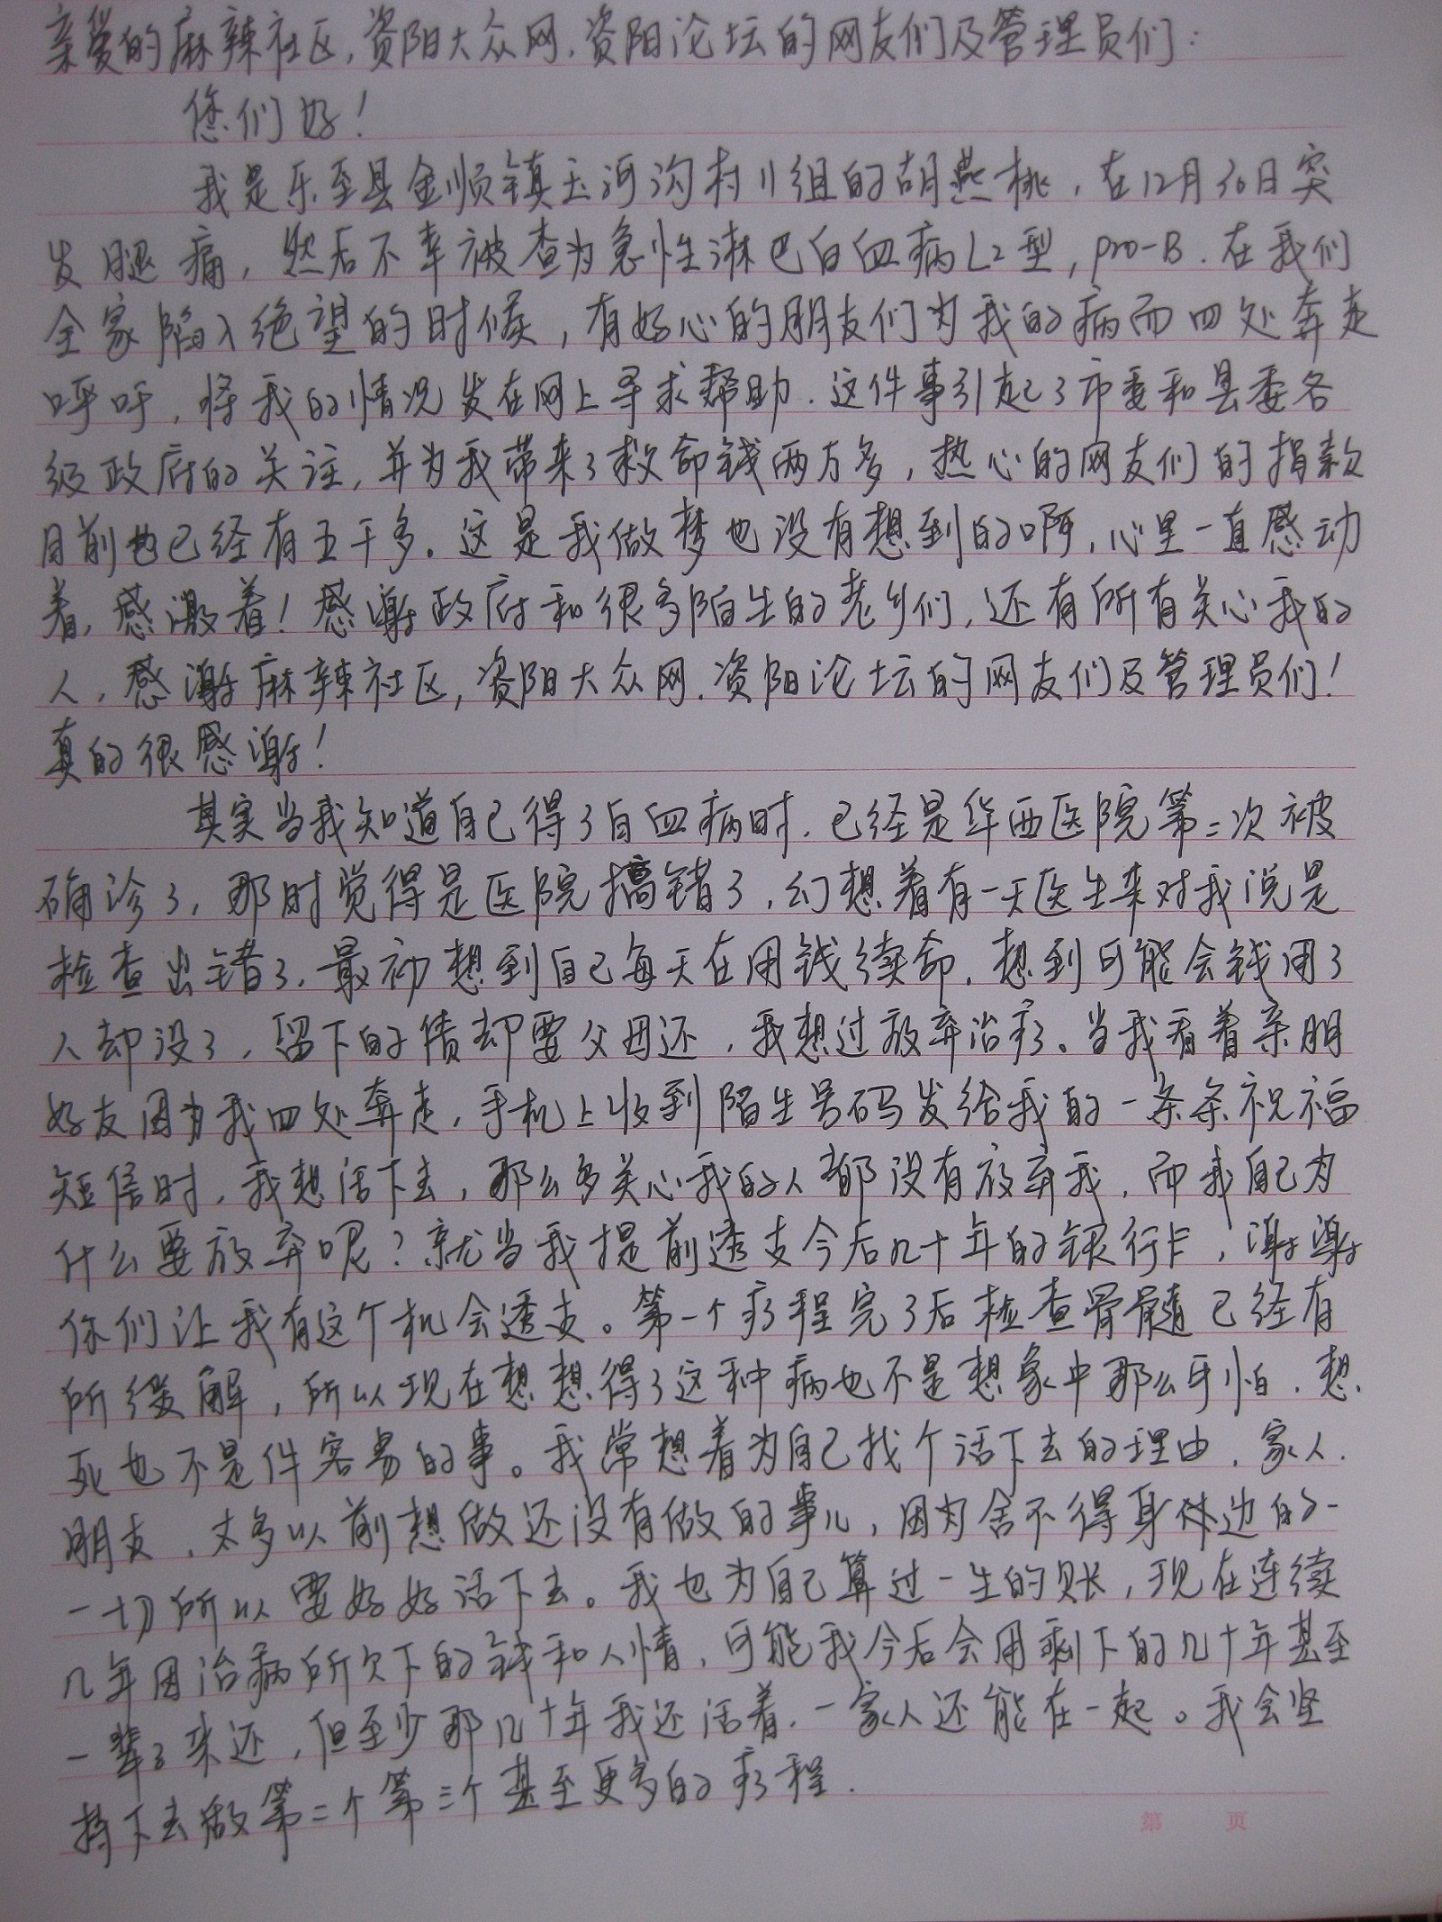 亲爱的麻辣社区,资阳大众网.资阳论坛的网友们及管理员们:
您们好!
我是乐至县金顺镇玉河沟村11组的胡燕桃,在12月30日突
发腿痛,然后不幸被查为急性淋巴白血病L2型,pro-B.在我们
全家陷入绝望的时候,有好心的朋友们为我的病而四处奔走
呼吁,将我的情况发在网上寻求帮助.这件事引起了市委和县委各
级政府的关注,并为我带来了救命钱两万多,热心的网友们的捐款
目前也已经有五千多.这是我做梦也没有想到的啊,心里一直感动
着,感激着!感谢政府和很多陌生的老乡们,还有所有关心我的
人,感谢麻辣社区,资阳大众网.资阳论坛的网友们及管理员们!
真的很感谢!
其实当我知道自己得了白血病时.已经是华西医院第二次被
确诊了,那时觉得是医院搞错了,幻想着有一天医生来对我说是
检查出错了.最初想到自己每天在用钱续命.想到可能会钱用了
人却没了,留下的债却要父母还,我想过放弃治疗。当我看着亲朋
好友因为我四处奔走,手机上收到陌生号码发给我的一条条祝福
短信时,我想活下去,那么多关心我的人都没有放弃我,而我自己为
什么要放弃呢?就当我提前透支今后几十年的银行卡,谢谢
你们让我有这个机会透支。第一个疗程完了后检查骨髓已经有
所缓解,所以现在想想得了这种病也不是想象中那么可怕.想
死也不是件容易的事。我常想着为自己找个活下去的理由.家人.
朋友,太多以前想做还没有做的事儿,因为舍不得身体边的一
一切所以要好好活下去。我也为自己算过一生的账,现在连续
几年因治病所欠下的钱和人情,可能我今后会用剩下的几十年甚至
一辈子来还,但至少那几十年我还活着.一家人还能在一起。我会坚
持下去做第二个第三个甚至更多的疗程.
第 页